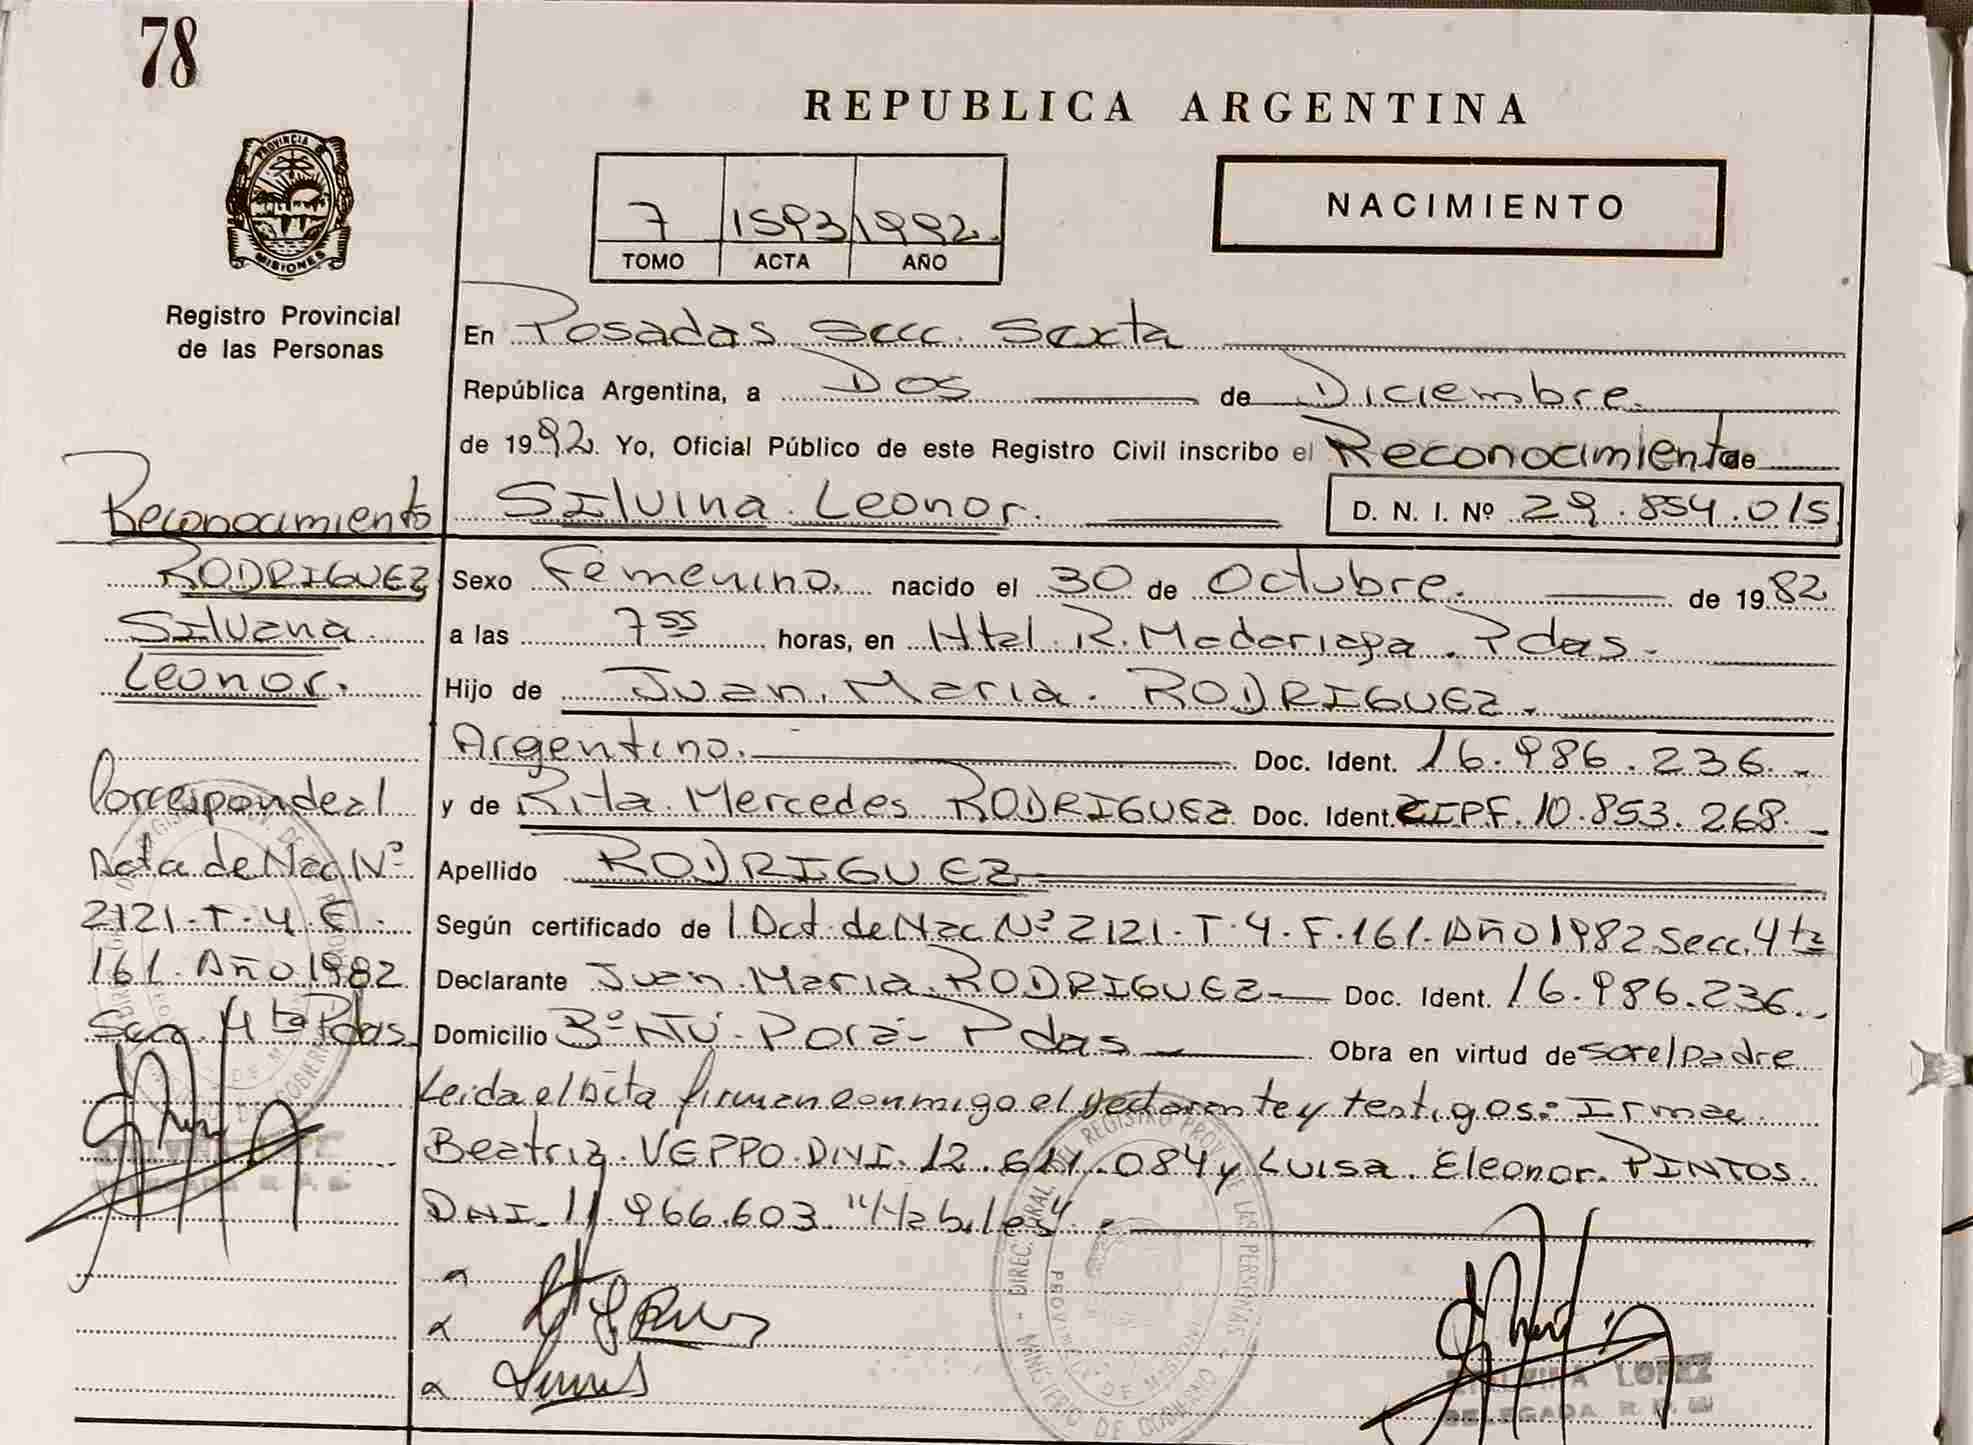 78
REPUBLICA ARGENTINA
PROVINCIA DE
MISIONES
7 1593 1992.
TOMO ACTA AÑO
NACIMIENTO
Registro Provincial
de las Personas
En Posadas Secc. Sexta
República Argentina, a Dos de Diciembre.
de 1992. Yo, Oficial Público de este Registro Civil inscribo el Reconocimiento de
Silvina Leonor. D. N. I. Nº 29.854.015
Reconocimiento
RODRIGUEZ
Silvana
Leonor.
Sexo Femenino. nacido el 30 de Octubre. de 1982
a las 7 55 horas, en Htal. R. Madariaga. Pdas.
Hijo de Juan María. RODRIGUEZ.
Argentino. Doc. Ident. 16.986.236.
y de Rita Mercedes RODRIGUEZ Doc. Ident. CIPF. 10.853.268.
Apellido RODRIGUEZ
Según certificado de 1 Act. de Nac Nº 2121. T. 4. F. 161. Año 1982 Secc. 4ta
Declarante Juan María RODRIGUEZ Doc. Ident. 16.986.236.
Domicilio Bº Ñtú Porá - Pdas Obra en virtud de ser el padre
Corresponde al
Acta de Nac Nº
2121. T. 4. F.
161. Año 1982
Secc. 4ta Pdas.
Leida el Acta firman conmigo el declarante y testigos: Irma
Beatriz VEPPO DNI. 12. .084 y Luisa Eleonor PINTOS.
DNI. 11.966.603. "Habiles".
DIREC. GRAL. DEL REGISTRO PROV. DE LAS PERSONAS
MINISTERIO DE GOBIERNO
PROV. DE MISIONES
LOPEZ
DELEGADA R. P.